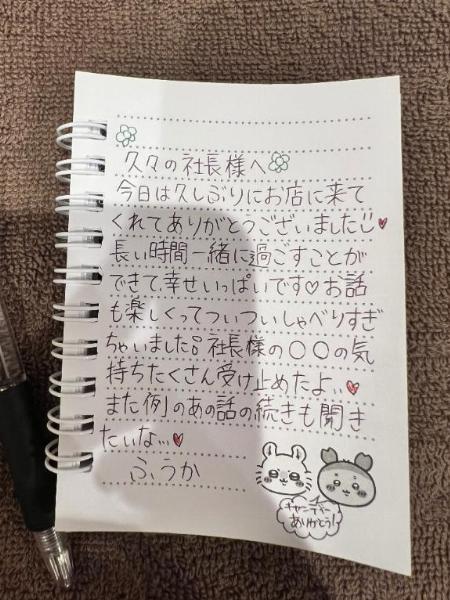 久々の社長様へ
今日は久しぶりにお店に来て
くれてありがとうございました
長い時間一緒に過ごすことが
できて幸せいっぱいです♡お話
も楽しくってついついしゃべりすぎ
ちゃいました。社長様の〇〇の気
持ちたくさん受け止めたよ...♥
また例のあの話の続きも聞き
たいな...♥
ふうか
ありがとう!